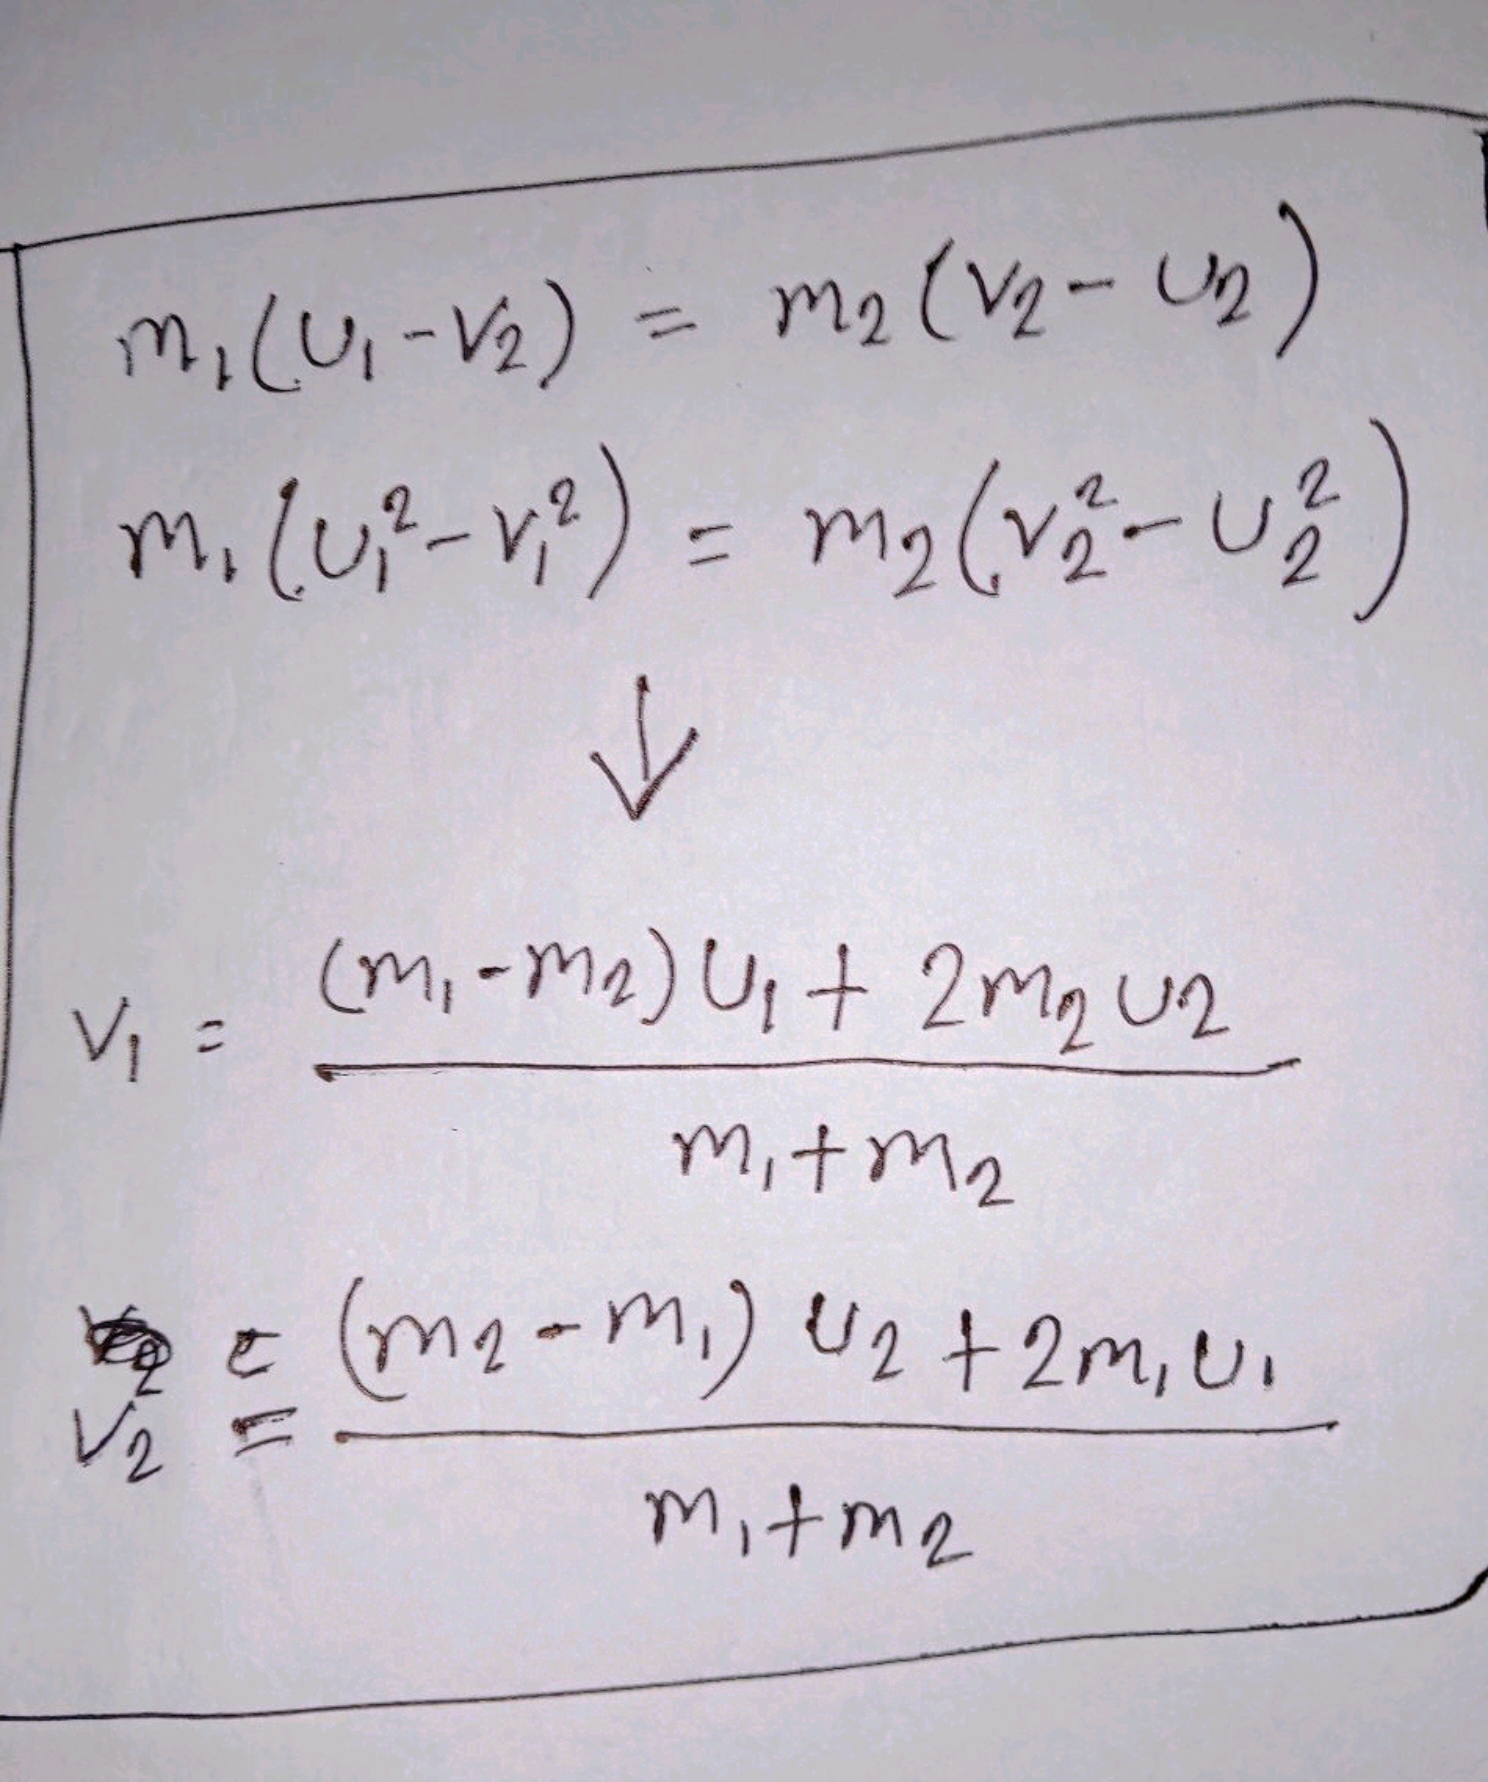 m₁(U₁-V₂) = m₂(V₂-U₂)
m₁(U₁²-V₁²) = m₂(V₂²-U₂²)
↓
V₁ = (m₁-m₂)U₁+2m₂U₂ / m₁+m₂
V₂ = (m₂-m₁)U₂+2m₁U₁ / m₁+m₂